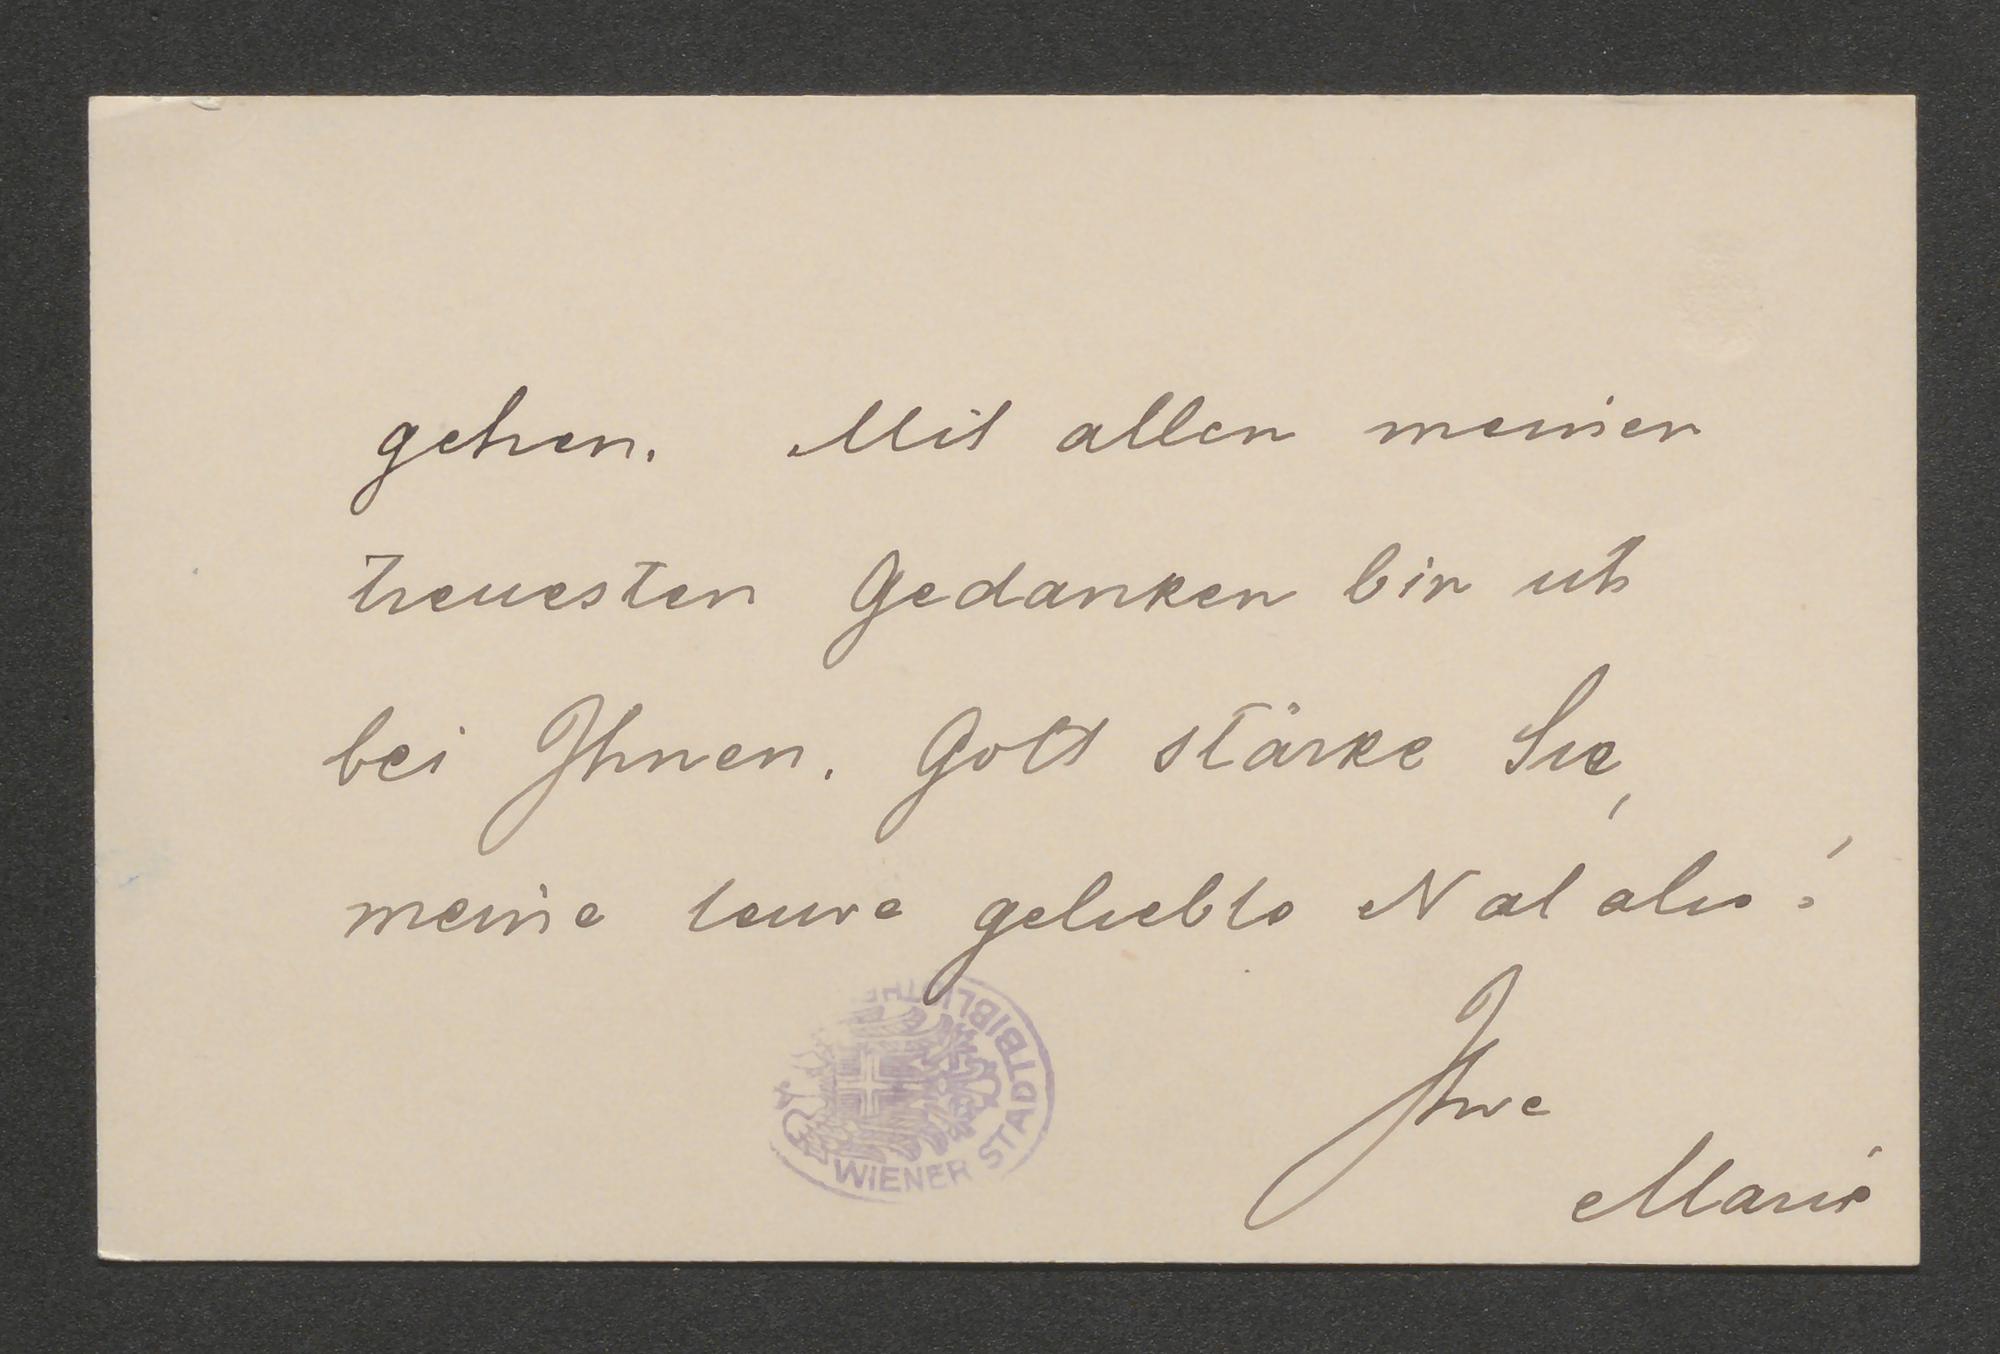 gehen. Mit allen meinen
treuesten Gedanken bin ich
bei Ihnen. Gott stärke Sie,
meine teure geliebte Natalie!
Ihre
Marie
WIENER STADTBIBLIOTHEK